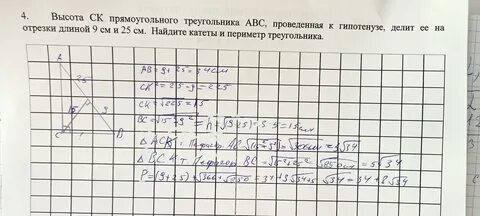 4. Высота СК прямоугольного треугольника АВС, проведенная к гипотенузе, делит ее на
отрезки длиной 9 см и 25 см. Найдите катеты и периметр треугольника.
A
25
15
9
C
B
AB=9+25=34см
CK²=25·9=225
CK=√225=15
BC=√15²+9²=
△ACK т. Пифагор
△BCK т. Пифагор BC=√15²+25² √850 = 5√34
P=(9+25)+√306+√850=34+3√34+5√34=34+8√34